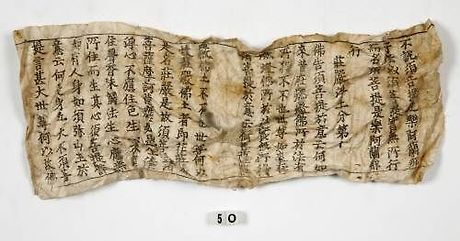 不說須菩提是樂阿蘭那
行者以須菩提實無所行
而名須菩提是樂阿蘭那
行
莊嚴淨土分第十
佛告須菩提於意云何如
來昔在然燈佛所於法有
所得不不也世尊如來在
然燈佛所於法實無所得
嚴佛土不不世尊何以
故莊嚴佛土者即非莊嚴
是名莊嚴是故須菩提諸
菩薩摩訶薩應如是生清
淨心不應住色生心不應
住聲香味觸法生心應無
所住而生其心須菩提譬
如有人身如須彌山王於
意云何是身為大不須菩
提言甚大世尊何以故佛
50